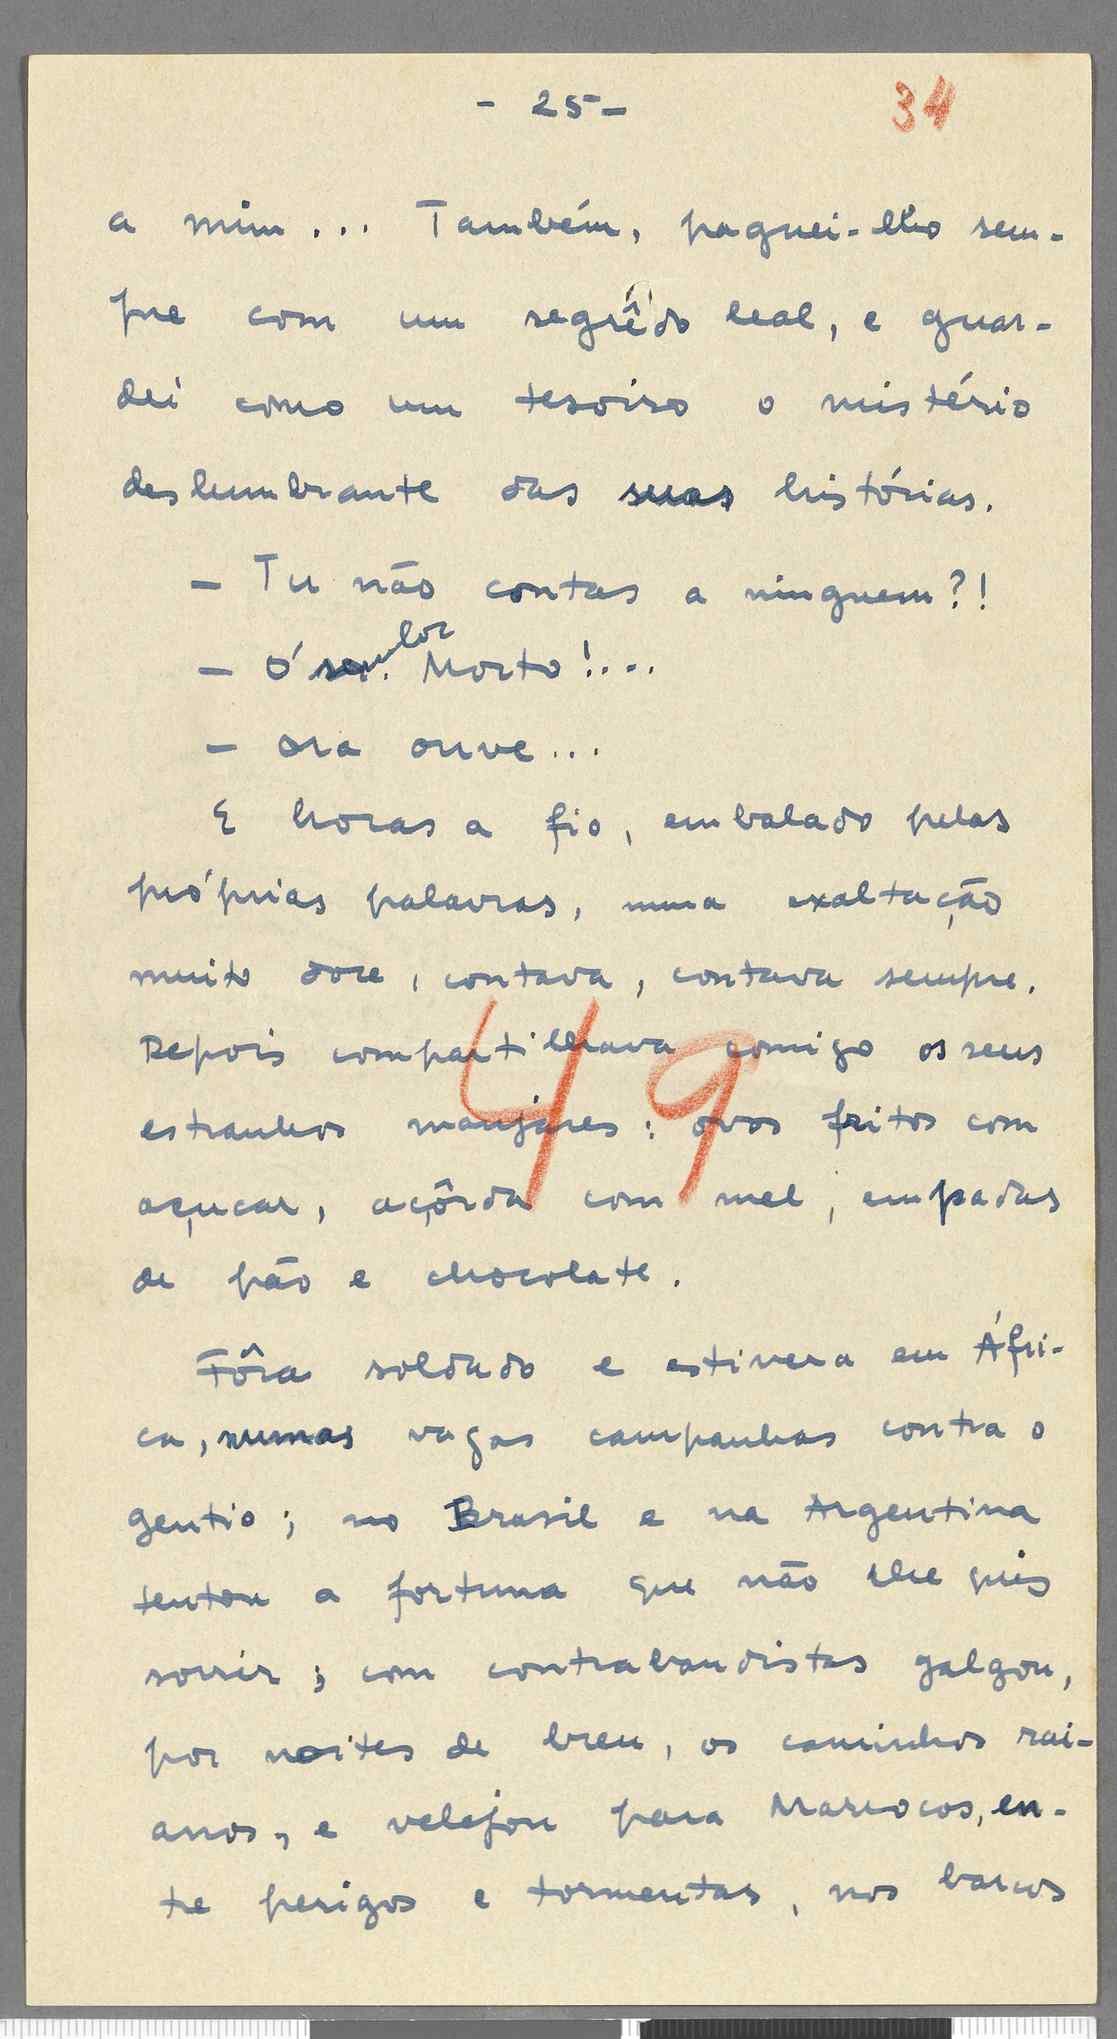 - 25 -
34
a mim... Também, paguei-lho sem-
pre com um segrêdo leal, e guar-
dei como um tesoiro o mistério
deslumbrante das suas histórias.
- Tu não contas a ninguem?!
- Ó senhor Morto!...
- Ora ouve...
E horas a fio, embalado pelas
próprias palavras, numa exaltação
muito doce, contava, contava sempre.
Depois compartilhava comigo os seus
49
estranhos manjares: ovos fritos com
açucar, açôrda com mel, empadas
de pão e chocolate.
Fôra soldado e estivera em Áfri-
ca, numas vagas campanhas contra o
gentio; no Brasil e na Argentina
tentou a fortuna que não lhe quis
sorrir; com contrabandistas galgou,
por noites de breu, os caminhos rai-
anos, e velejou para Marrocos, en-
tre perigos e tormentas, nos barcos